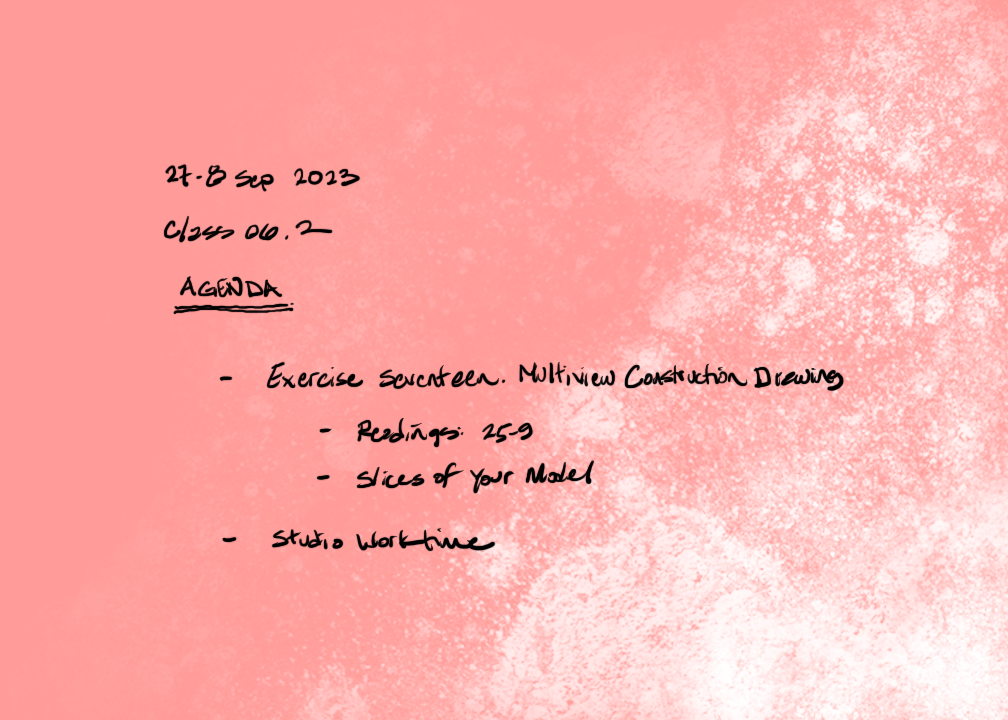 27-8 Sep 2023
Class 06.2
AGENDA
- Exercise Seventeen. Multiview Construction Drawing
- Readings: 25-9
- Slices of Your Model
- Studio Worktime